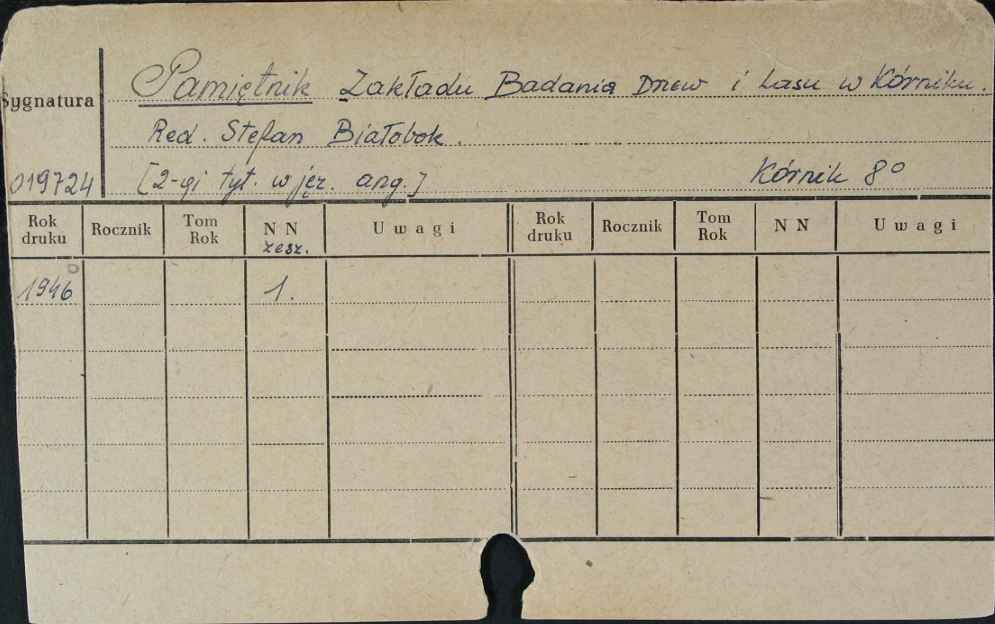 Pamiętnik Zakładu Badania Drzew i Lasu w Kórniku.
Sygnatura
Red. Stefan Białobok.
019724 [2-gi tyt. w jęz. ang.] Kórnik 8°
Rok druku Rocznik Tom Rok NN zesz. Uwagi Rok druku Rocznik Tom Rok NN Uwagi
1946 1.